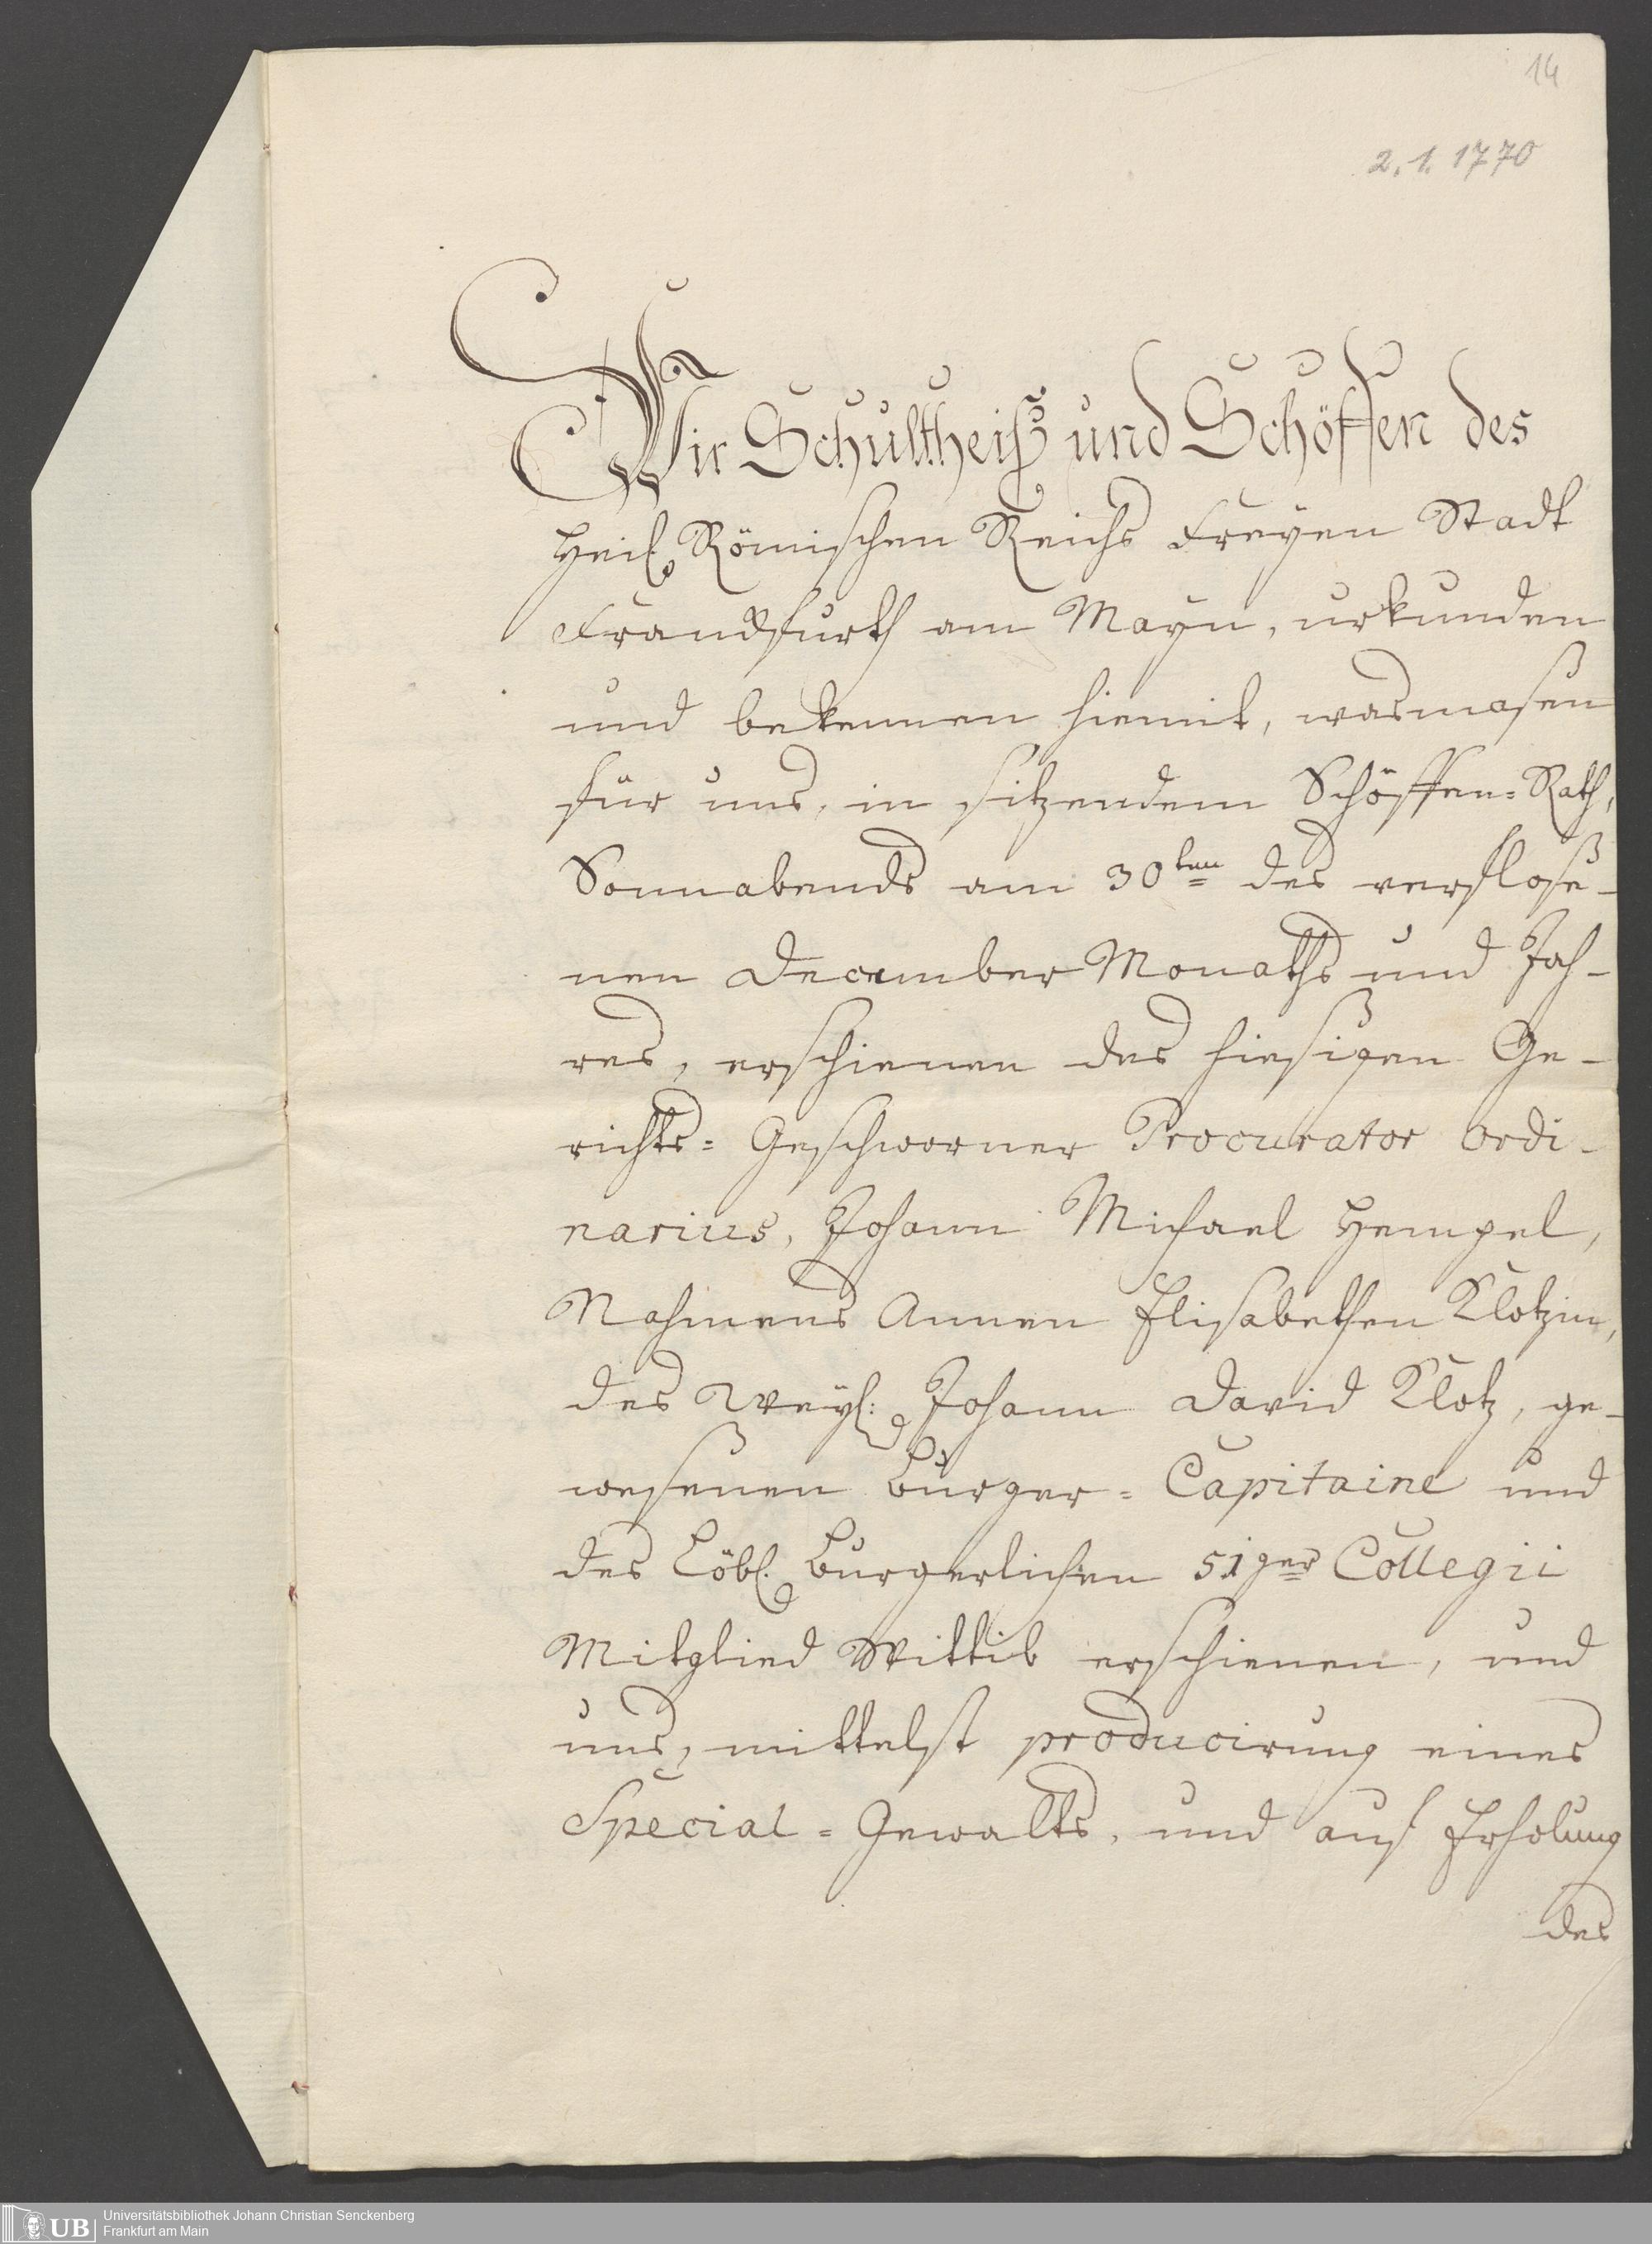 14
2. 1. 1770
Wir Schultheiß und Schöffen des
Heil. Römischen Reichs Freyen Stadt
Franckfurth am Mayn, urkunden
und bekennen hiemit, wasmasen
für uns, in sitzendem Schöffen=Rath,
Sonnabends am 30ten des verflose-
nen December Monaths und Jah-
res, erschienen des hiesigen Ge-
richts=Geschworner Procurator ordi-
narius, Johann Michael Hempel,
Nahmens Annen Elisabethen Klotzin,
des Weyl: Johann David Klotz, ge-
wesenen Burger=Capitaine und
des Löbl. Burgerlichen 51ger Collegii
Mitglied Wittib erschienen, und
uns, mittelst producirung eines
Special=Gewalts, und auf Erholung
des
UB
Universitätsbibliothek Johann Christian Senckenberg
Frankfurt am Main